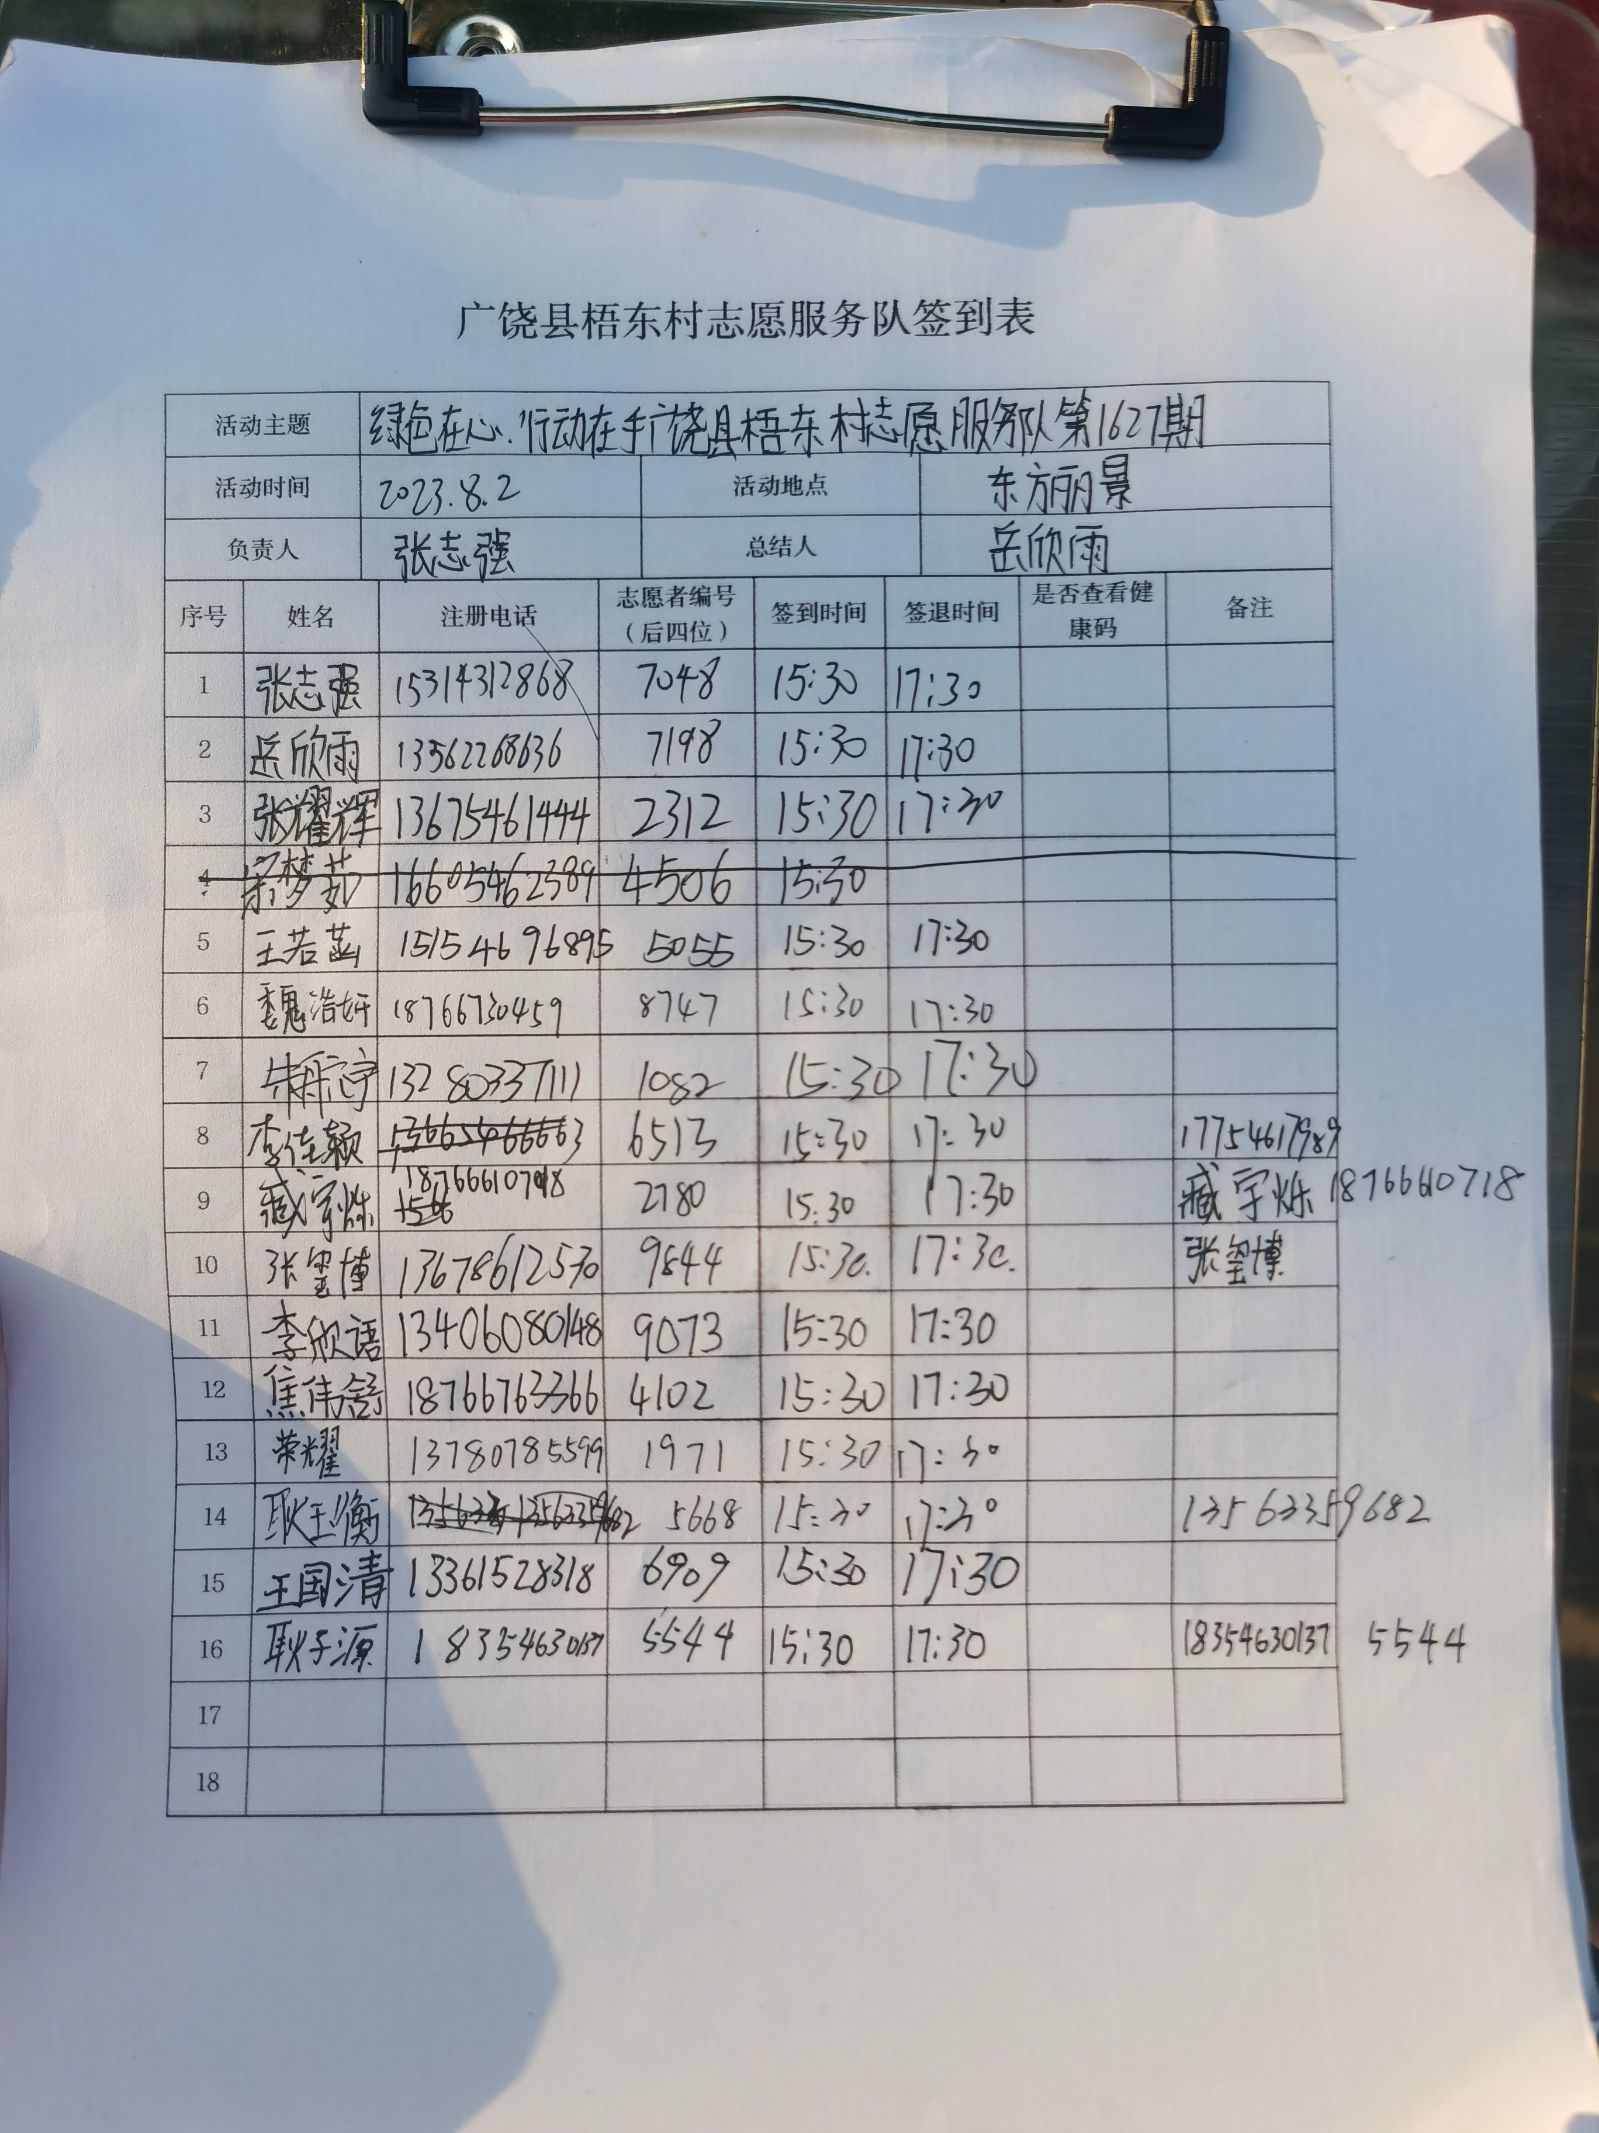 广饶县梧东村志愿服务队签到表
活动主题 绿色在心.行动在手广饶县梧东村志愿服务队第1627期
活动时间 2023.8.2 活动地点 东方丽景
负责人 张志强 总结人 岳欣雨
序号 姓名 注册电话 志愿者编号（后四位） 签到时间 签退时间 是否查看健康码 备注
1 张志强 15314312868 7048 15:30 17:30
2 岳欣雨 13562268636 7198 15:30 17:30
3 张耀辉 13675461444 2312 15:30 17:30
4 宗梦茹 16605462389 4506 15:30
5 王若菡 15154696895 5055 15:30 17:30
6 魏浩妍 18766730459 8747 15:30 17:30
7 朱航宇 13280337111 1082 15:30 17:30
8 李佳颖 6513 15:30 17:30 17754617989
9 臧宇烁 2780 15:30 17:30 臧宇烁 18766610718
10 张玺博 13678612570 9844 15:30. 17:30. 张玺博
11 李欣语 13406080148 9073 15:30 17:30
12 焦伟舒 18766763366 4102 15:30 17:30
13 荣耀 13780785599 1971 15:30 17:30
14 耿玉衡 5668 15:30 17:30 13563359682
15 王国清 13361528318 6909 15:30 17:30
16 耿子源 18354630137 5544 15:30 17:30 18354630137 5544
17
18